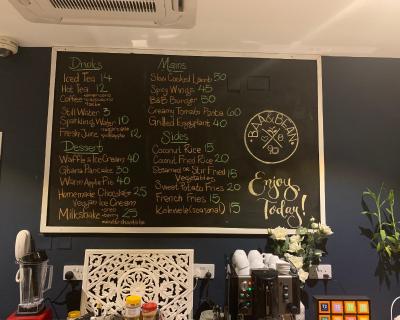 Drinks
Iced Tea 14
Hot Tea 12
Coffee
Still Water 3
Sparkling Water 10
Fresh Juice 12
Dessert
Waffle & Ice Cream 40
Ghana Pancake 30
Warm Apple Pie 40
Homemade Chocbar 25
Vegan Ice Cream
Milkshake 25
Mains
Slow Cooked Lamb 50
Spicy Wings 45
B&B Burger 50
Creamy Tomato Pasta 60
Grilled Eggplant 40
Sides
Coconut Rice 15
Coconut Fried Rice 20
Steamed or Stir Fried 15
Vegetables
Sweet Potato Fries 20
French Fries 15
Kelewele (seasonal) 15
BAA & BEAN
90
Enjoy
Today!